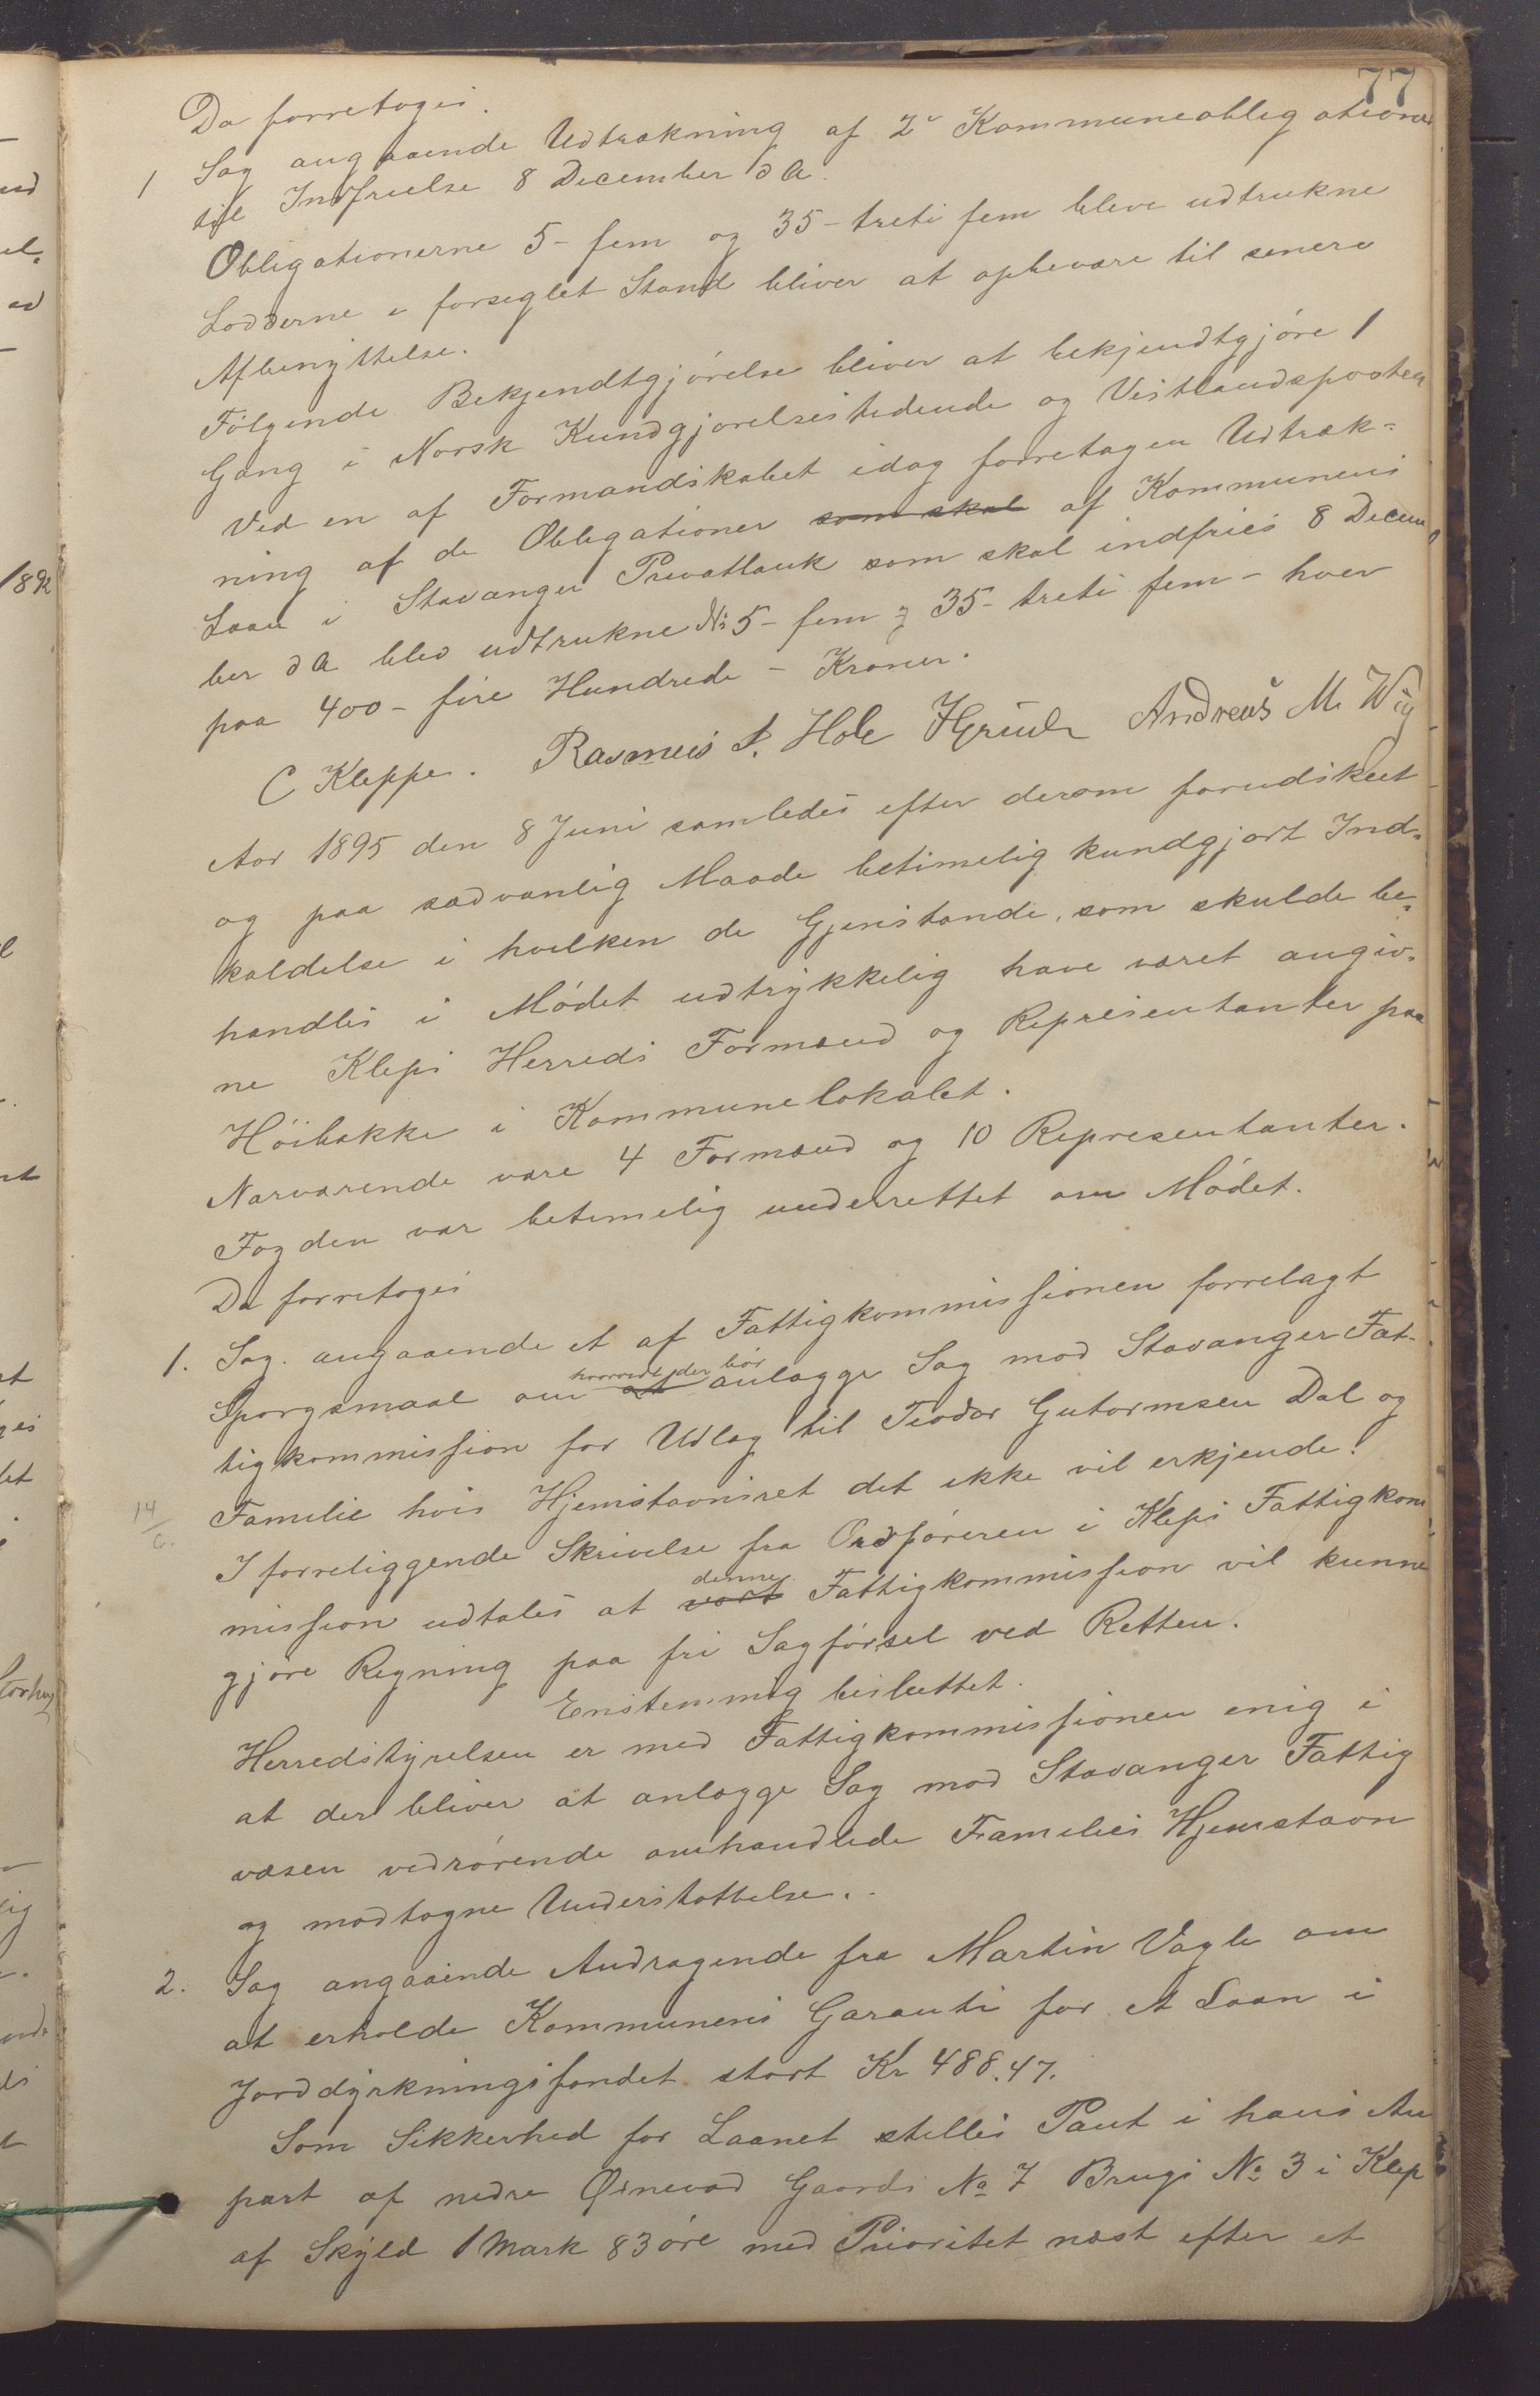 77
Da forretoges.
1 Sag angaaende Udtrækning af 2de Kommuneobligationer
til Indfrielse 8 December d A.
Obligationerne 5 - fem og 35 - treti fem bleve udtrukne
Lodderne i forseglet Stand bliver at opbevare til senere
Afbenyttelse.
Følgende Bekjendtgjørelse bliver at bekjendtgjøre 1
Gang i Norsk Kundgjørelsestidende og Vestlandsposten
Ved en af Formandskabet idag foretagen Udtræk-
ning af de Obligationer som skal af Kommunens
Laan i Stavanger Privatbank som skal indfries 8 Decem
ber d A blev udtrukne No 5 - fem og 35 - treti fem - hver
paa 400 - fire Hundrede - Kroner.
C Kleppe. Rasmus S. Hole Andreas M. Wig
Aar 1895 den 8 Juni samledes efter derom forudskeet
og paa sædvanlig Maade betimelig kundgjort Ind-
kaldelse i hvilken de Gjenstande, som skulde be-
handles i Mødet udtrykkelig have været angiv-
ne Kleps Herreds Formænd og Representanter paa
Höibakke i Kommunelokalet.
Nærværende vare 4 Formænd og 10 Representanter.
Fogden var betimelig underrettet om Mødet.
Da forretoges
1. Sag angaaende et af Fattigkommissionen forrelagt
Spørgsmaal om at hvorvidt der bør anlægge Sag mod Stavanger Fat-
tigkommission for Udlæg til Teodor Gutormsen Dal og
Familie hvis Hjemstavnsret det ikke vil erkjende.
14/6. I forreliggende Skrivelse fra Ordføreren i Kleps Fattigkom
mission udtales at vort denne Fattigkommission vil kunne
gjøre Regning paa fri Sagførsel ved Retten.
Enstemmig besluttet.
Herredstyrelsen er med Fattigkommissionen enig i
at der bliver at anlægge Sag mod Stavanger Fattig
væsen vedrørende omhandlede Families Hjemstavn
og modtagne Understøttelse.
2. Sag angaaende Andragende fra Martin Vagle om
at erholde Kommunens Garanti for et Laan i
Jorddyrkningsfondet stort Kr 488.47.
Som Sikkerhed for Laanet stilles Pant i hans An
part af nedre Øxnevad Gaards No 7 Brugs No 3 i Klep
af Skyld 1 Mark 83 øre med Prioritet næst efter et